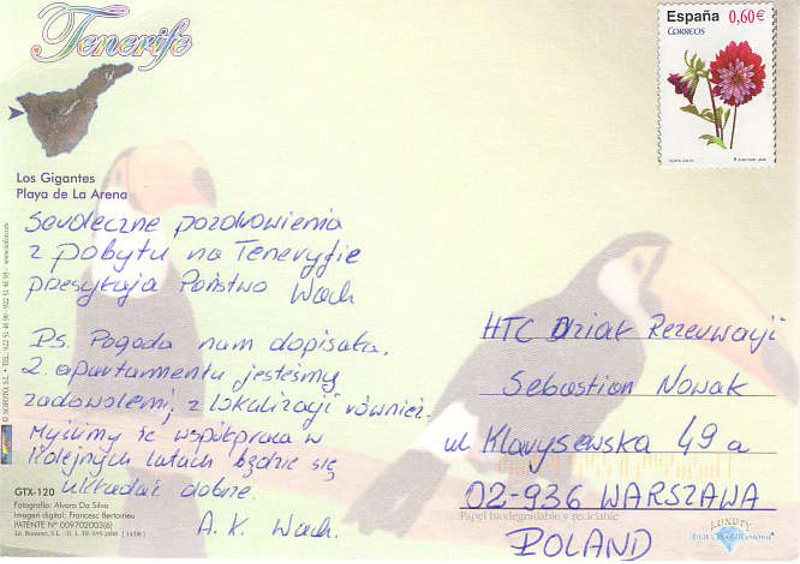 Tenerife
España 0,60€
CORREOS
Los Gigantes
Playa de La Arena
Serdeczne pozdrowienia
z pobytu na Teneryfie
przesyłają Państwo Wach
Ps. Pogoda nam dopisała.
Z apartamentu jesteśmy
zadowoleni, z lokalizacji również.
Myślimy że współpraca w
kolejnych latach będzie się
układać dobrze.
A. K. Wach.
HTC Dział Rezerwacji
Sebastian Nowak
ul Klarysewska 49 a
02-936 WARSZAWA
POLAND
GTX-120
Fotografía: Alvaro Da Silva
Imagen digital: Francesc Bertomeu
PATENTE Nº 009702003(6)
Papel biodegradable y reciclable